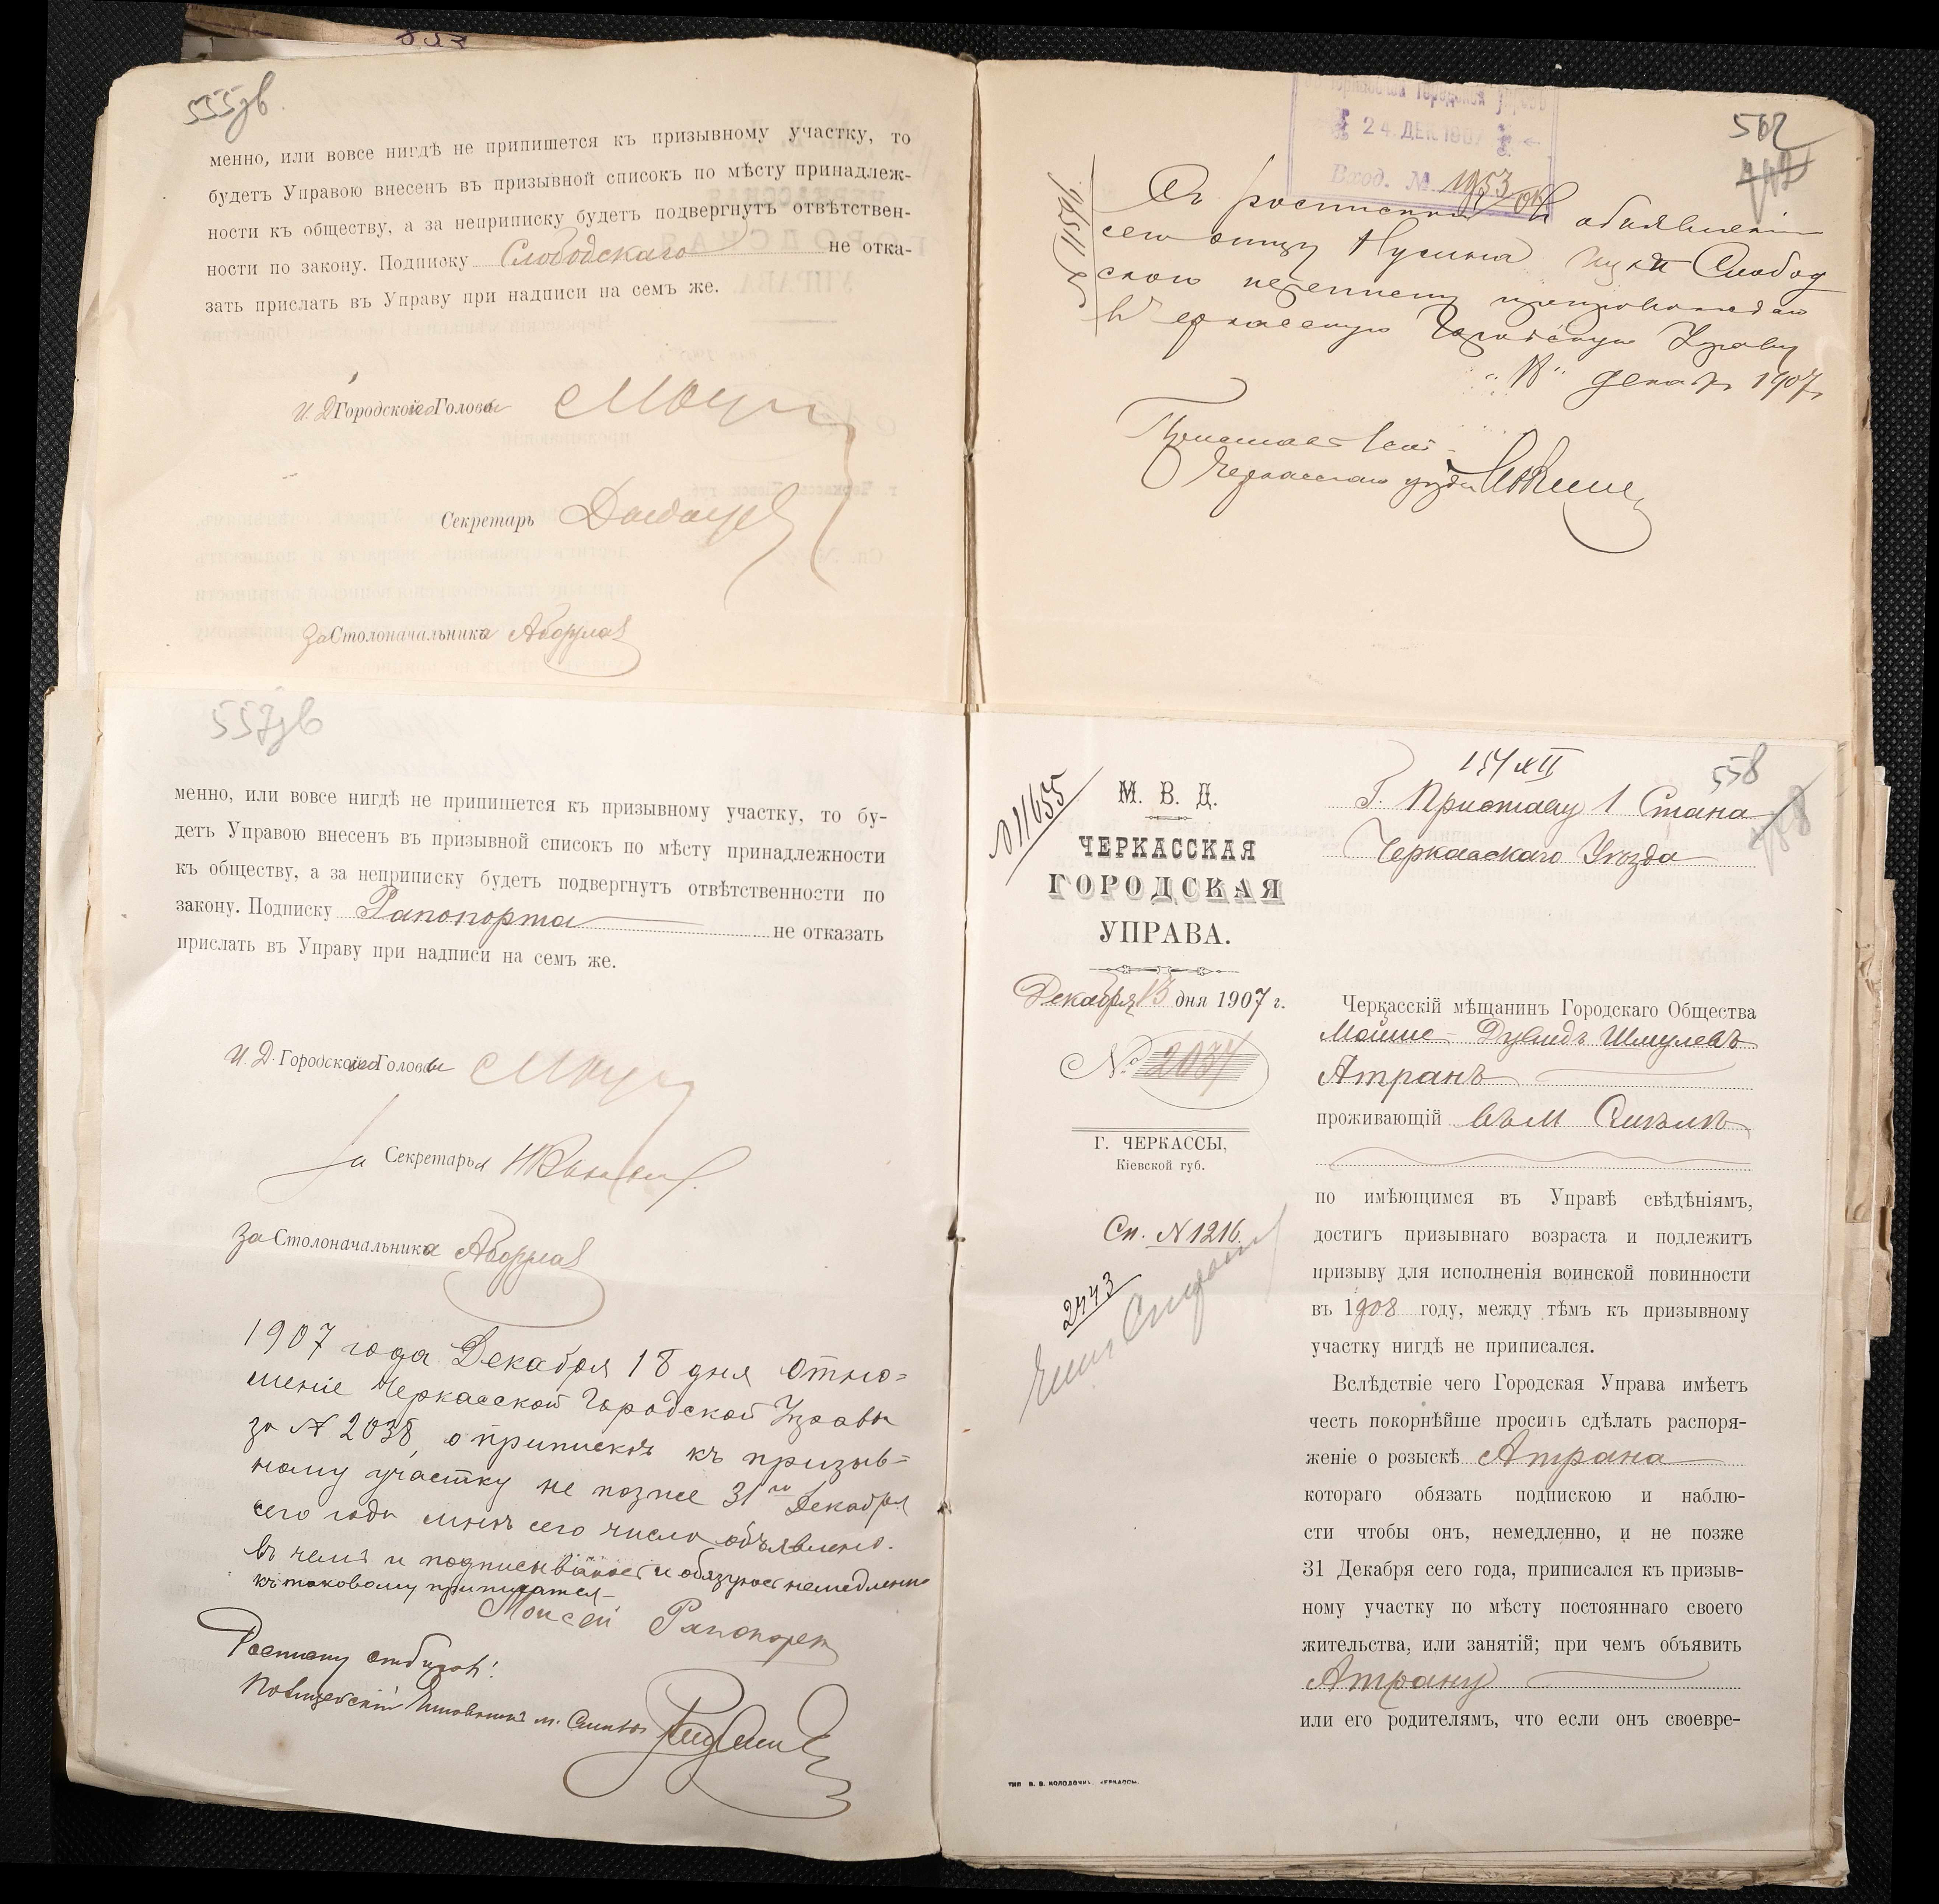 555об.
менно, или вовсе нигдѣ не припишется къ призывному участку, то
будетъ Управою внесенъ въ призывной списокъ по мѣсту принадлеж-
ности къ обществу, а за неприписку будетъ подвергнутъ отвѣтствен-
ности по закону. Подписку Слободскаго не отка-
зать прислать въ Управу при надписи на семъ же.
И. Д. Городского Головы
Секретарь
За Столоначальника
24 ДЕК. 1907
Вход. №
502
Съ роспискою объ объявленіи
сего отцу Нусина Слобод
скаго препровождаю
Черкасскую Городскую Управу
декабр 1907 г.
Черкасскаго уѣзда
557об
менно, или вовсе нигдѣ не припишется къ призывному участку, то бу-
детъ Управою внесенъ въ призывной списокъ по мѣсту принадлежности
къ обществу, а за неприписку будетъ подвергнутъ отвѣтственности по
закону. Подписку Рапопорта не отказать
прислать въ Управу при надписи на семъ же.
И. Д. Городского Головы
За Секретаря
За Столоначальника
1907 года Декабря 18 дня Отно=
шеніе Черкасской Городской Управы
за № 2038, о припискѣ къ призыв=
ному участку не позже 31го Декабря
сего года мнѣ сего число объявлено.
въ чемъ и подписываюсь и обязуюсь немедленно
къ таковому приписатся
Моисей Рапопорт
Росписку отбиралъ!
м. Смѣлы
558
№ 11655
М. В. Д.
ЧЕРКАССКАЯ
ГОРОДСКАЯ
УПРАВА.
Декабря 13 дня 1907 г.
№ 2037
Г. ЧЕРКАССЫ,
Кіевской губ.
Сп. № 1216.
2443
Г. Приставу 1 Стана
Черкасскаго Уѣзда
Черкасскій мѣщанинъ Городскаго Общества
Мойше-Дувидъ Шмулевъ
Атранъ
проживающій въ м Смѣлѣ
по имѣющимся въ Управѣ свѣдѣніямъ,
достигъ призывнаго возраста и подлежитъ
призыву для исполненія воинской повинности
въ 1908 году, между тѣмъ къ призывному
участку нигдѣ не приписался.
Вслѣдствіе чего Городская Управа имѣетъ
честь покорнѣйше просить сдѣлать распоря-
женіе о розыскѣ Атрана
котораго обязать подпискою и наблю-
сти чтобы онъ, немедленно, и не позже
31 Декабря сего года, приписался къ призыв-
ному участку по мѣсту постояннаго своего
жительства, или занятій; при чемъ объявить
Атрану
или его родителямъ, что если онъ своевре-